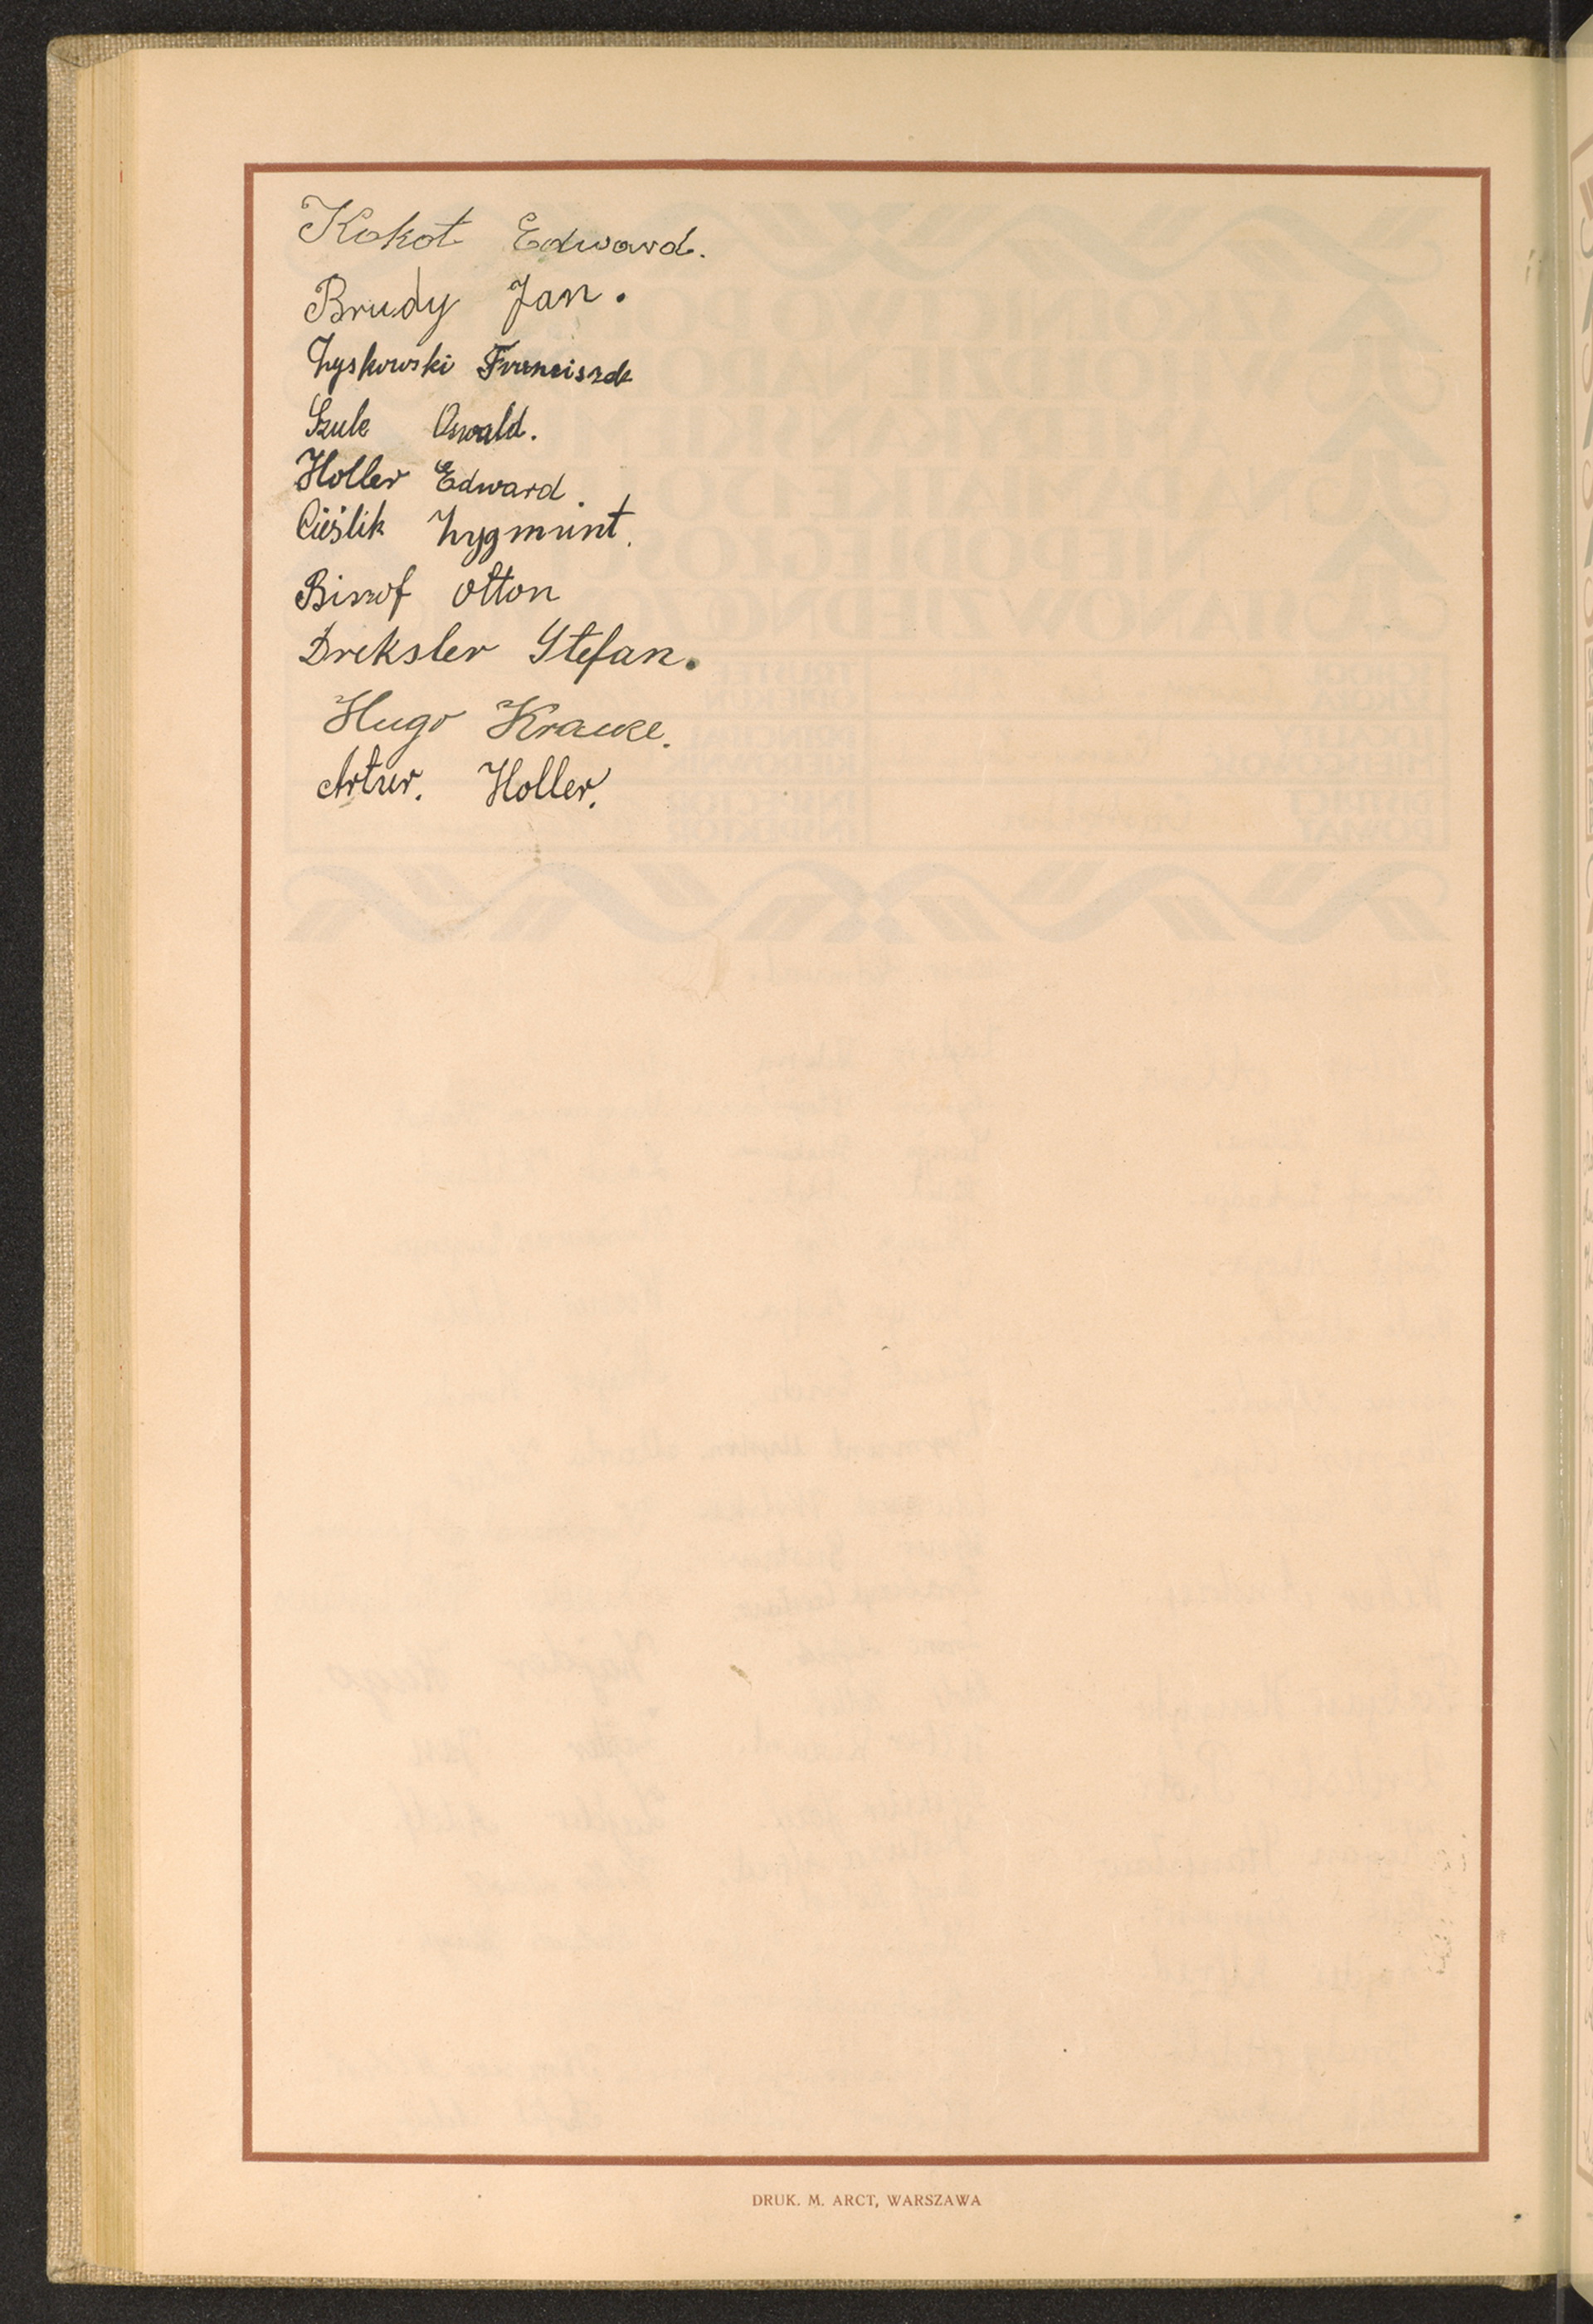 Kokot Edward.
Brudy Jan.
Zyskowski Franciszek
Szule Oswald.
Holler Edward.
Cieślik Zygmunt.
Biszof Otton
Dreksler Stefan.
Hugo Krause.
Artur. Holler.
DRUK. M. ARCT, WARSZAWA